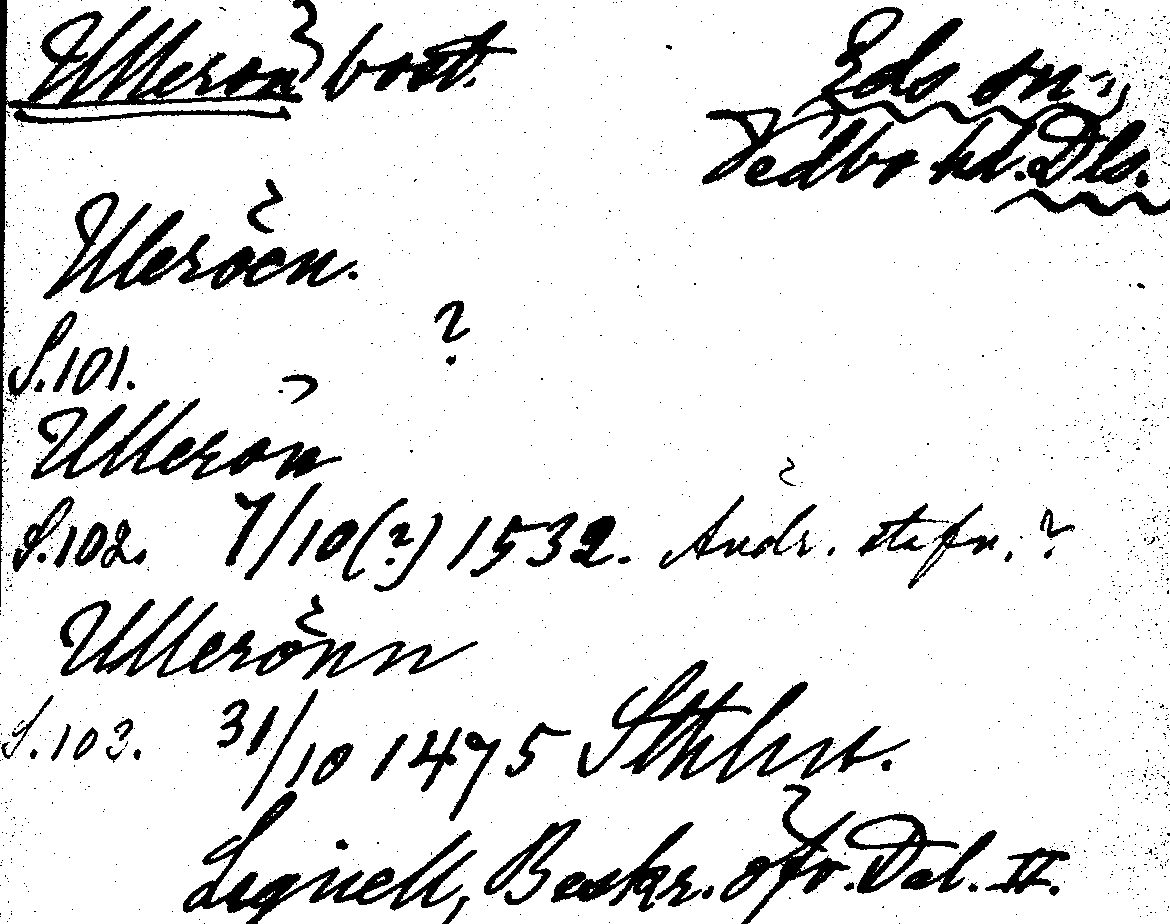 Ullerön bost.
Eds sn.,
Vedbo hd. Dls.
Uleröen.
S.101. ?
Ullerön
S.102. 7/10(?) 1532. Andr. stefn.?
Ullerönn
S.103. 31/10 1475 Sthlm.
Lignell, Beskr. öfv. Dal. II.